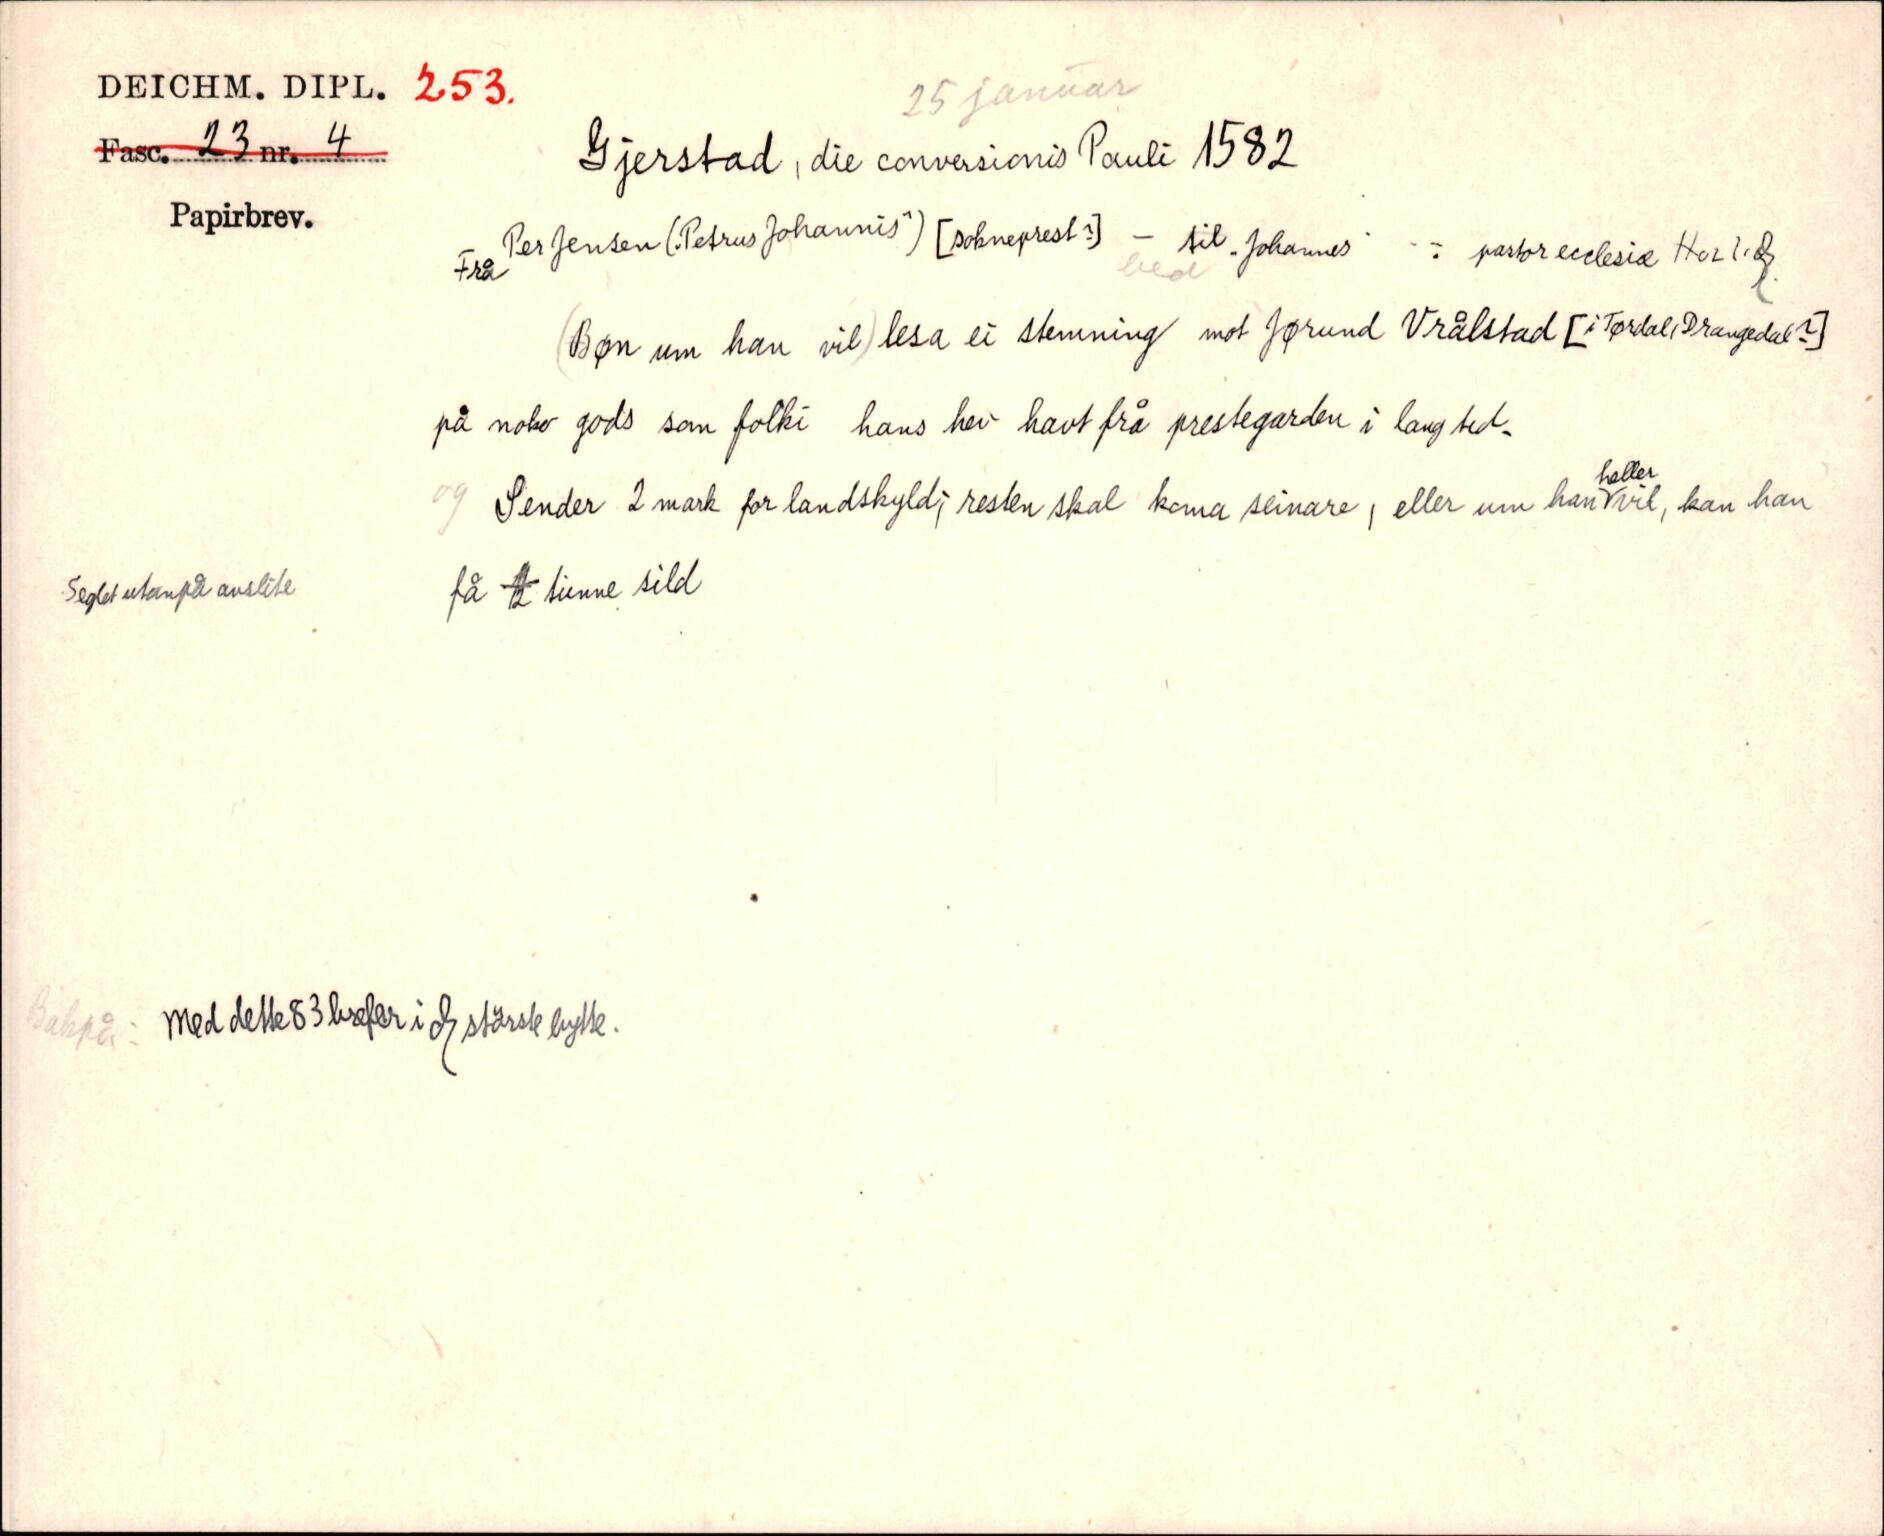 DEICHM. DIPL. 253.
25 januar
Fasc. 23 nr. 4
Gjerstad, die conversionis Pauli 1582
Papirbrev.
Frå Per Jensen („Petrus Johannis") [sokneprest?] – til „Johannes pastor ecclesiæ
bed
(Bøn um han vil) lesa ei stemning mot Jørund Vrålstad [i Tørdal, Drangedal?]
på noko gods som folki hans hev havt frå prestegarden i lang tid.
og Sender 2 mark for landskyld; resten skal koma seinare, eller um han heller vil, kan han
få ½ tunne sild
Seglet utanpå avslite
Bakpå: Med dette 83 brefer i stärste bytte.